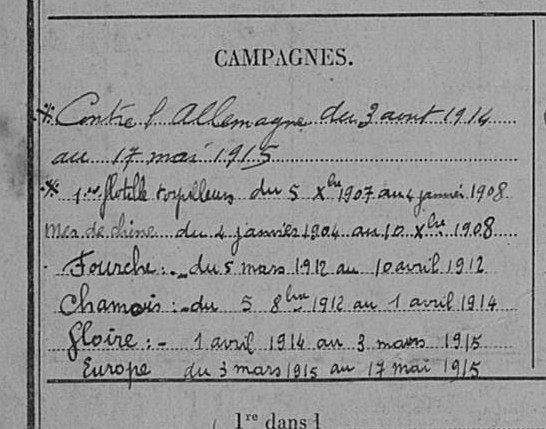 CAMPAGNES.
* Contre l'Allemagne du 3 aout 1914
au 17 mai 1915
* 1ère flotille torpilleurs du 5 Xbre 1907 au 4 janvier 1908
Mer de chine du 4 janvier 1904 au 10 Xbre 1908
Fourche : du 5 mars 1912 au 10 avril 1912
Chamois : - du 5 8bre 1912 au 1 avril 1914
Gloire : - 1 avril 1914 au 3 mars 1915
Europe du 3 mars 1915 au 17 mai 1915
1re dans l